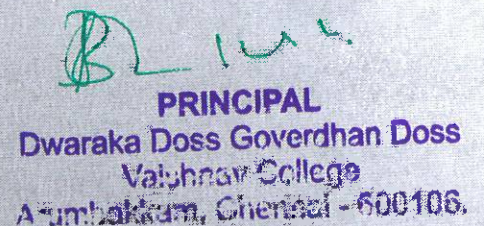 PRINCIPAL
Dwaraka Doss Goverdhan Doss
Vaishnav College
Arumbakkam, Chennai - 600106.